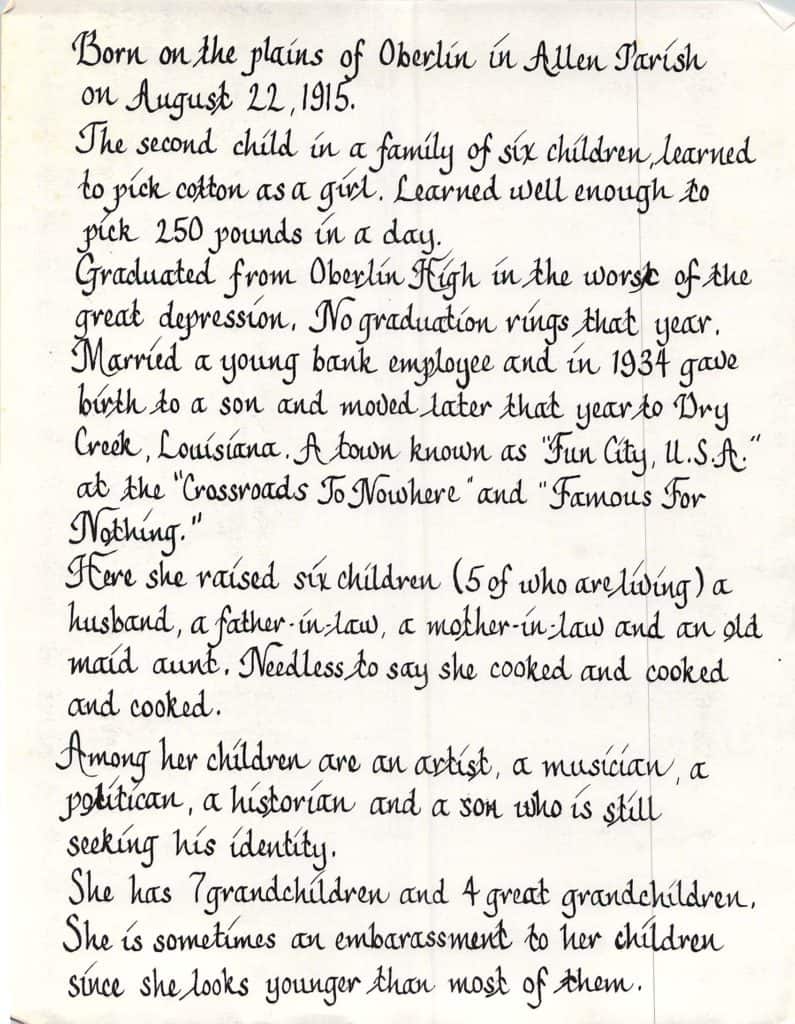 Born on the plains of Oberlin in Allen Parish
on August 22, 1915.
The second child in a family of six children, learned
to pick cotton as a girl. Learned well enough to
pick 250 pounds in a day.
Graduated from Oberlin High in the worst of the
great depression. No graduation rings that year.
Married a young bank employee and in 1934 gave
birth to a son and moved later that year to Dry
Creek, Louisiana. A town known as "Fun City, U.S.A."
at the "Crossroads To Nowhere" and "Famous For
Nothing."
Here she raised six children (5 of who are living) a
husband, a father-in-law, a mother-in-law and an old
maid aunt. Needless to say she cooked and cooked
and cooked.
Among her children are an artist, a musician, a
politican, a historian and a son who is still
seeking his identity.
She has 7 grandchildren and 4 great grandchildren.
She is sometimes an embarassment to her children
since she looks younger than most of them.